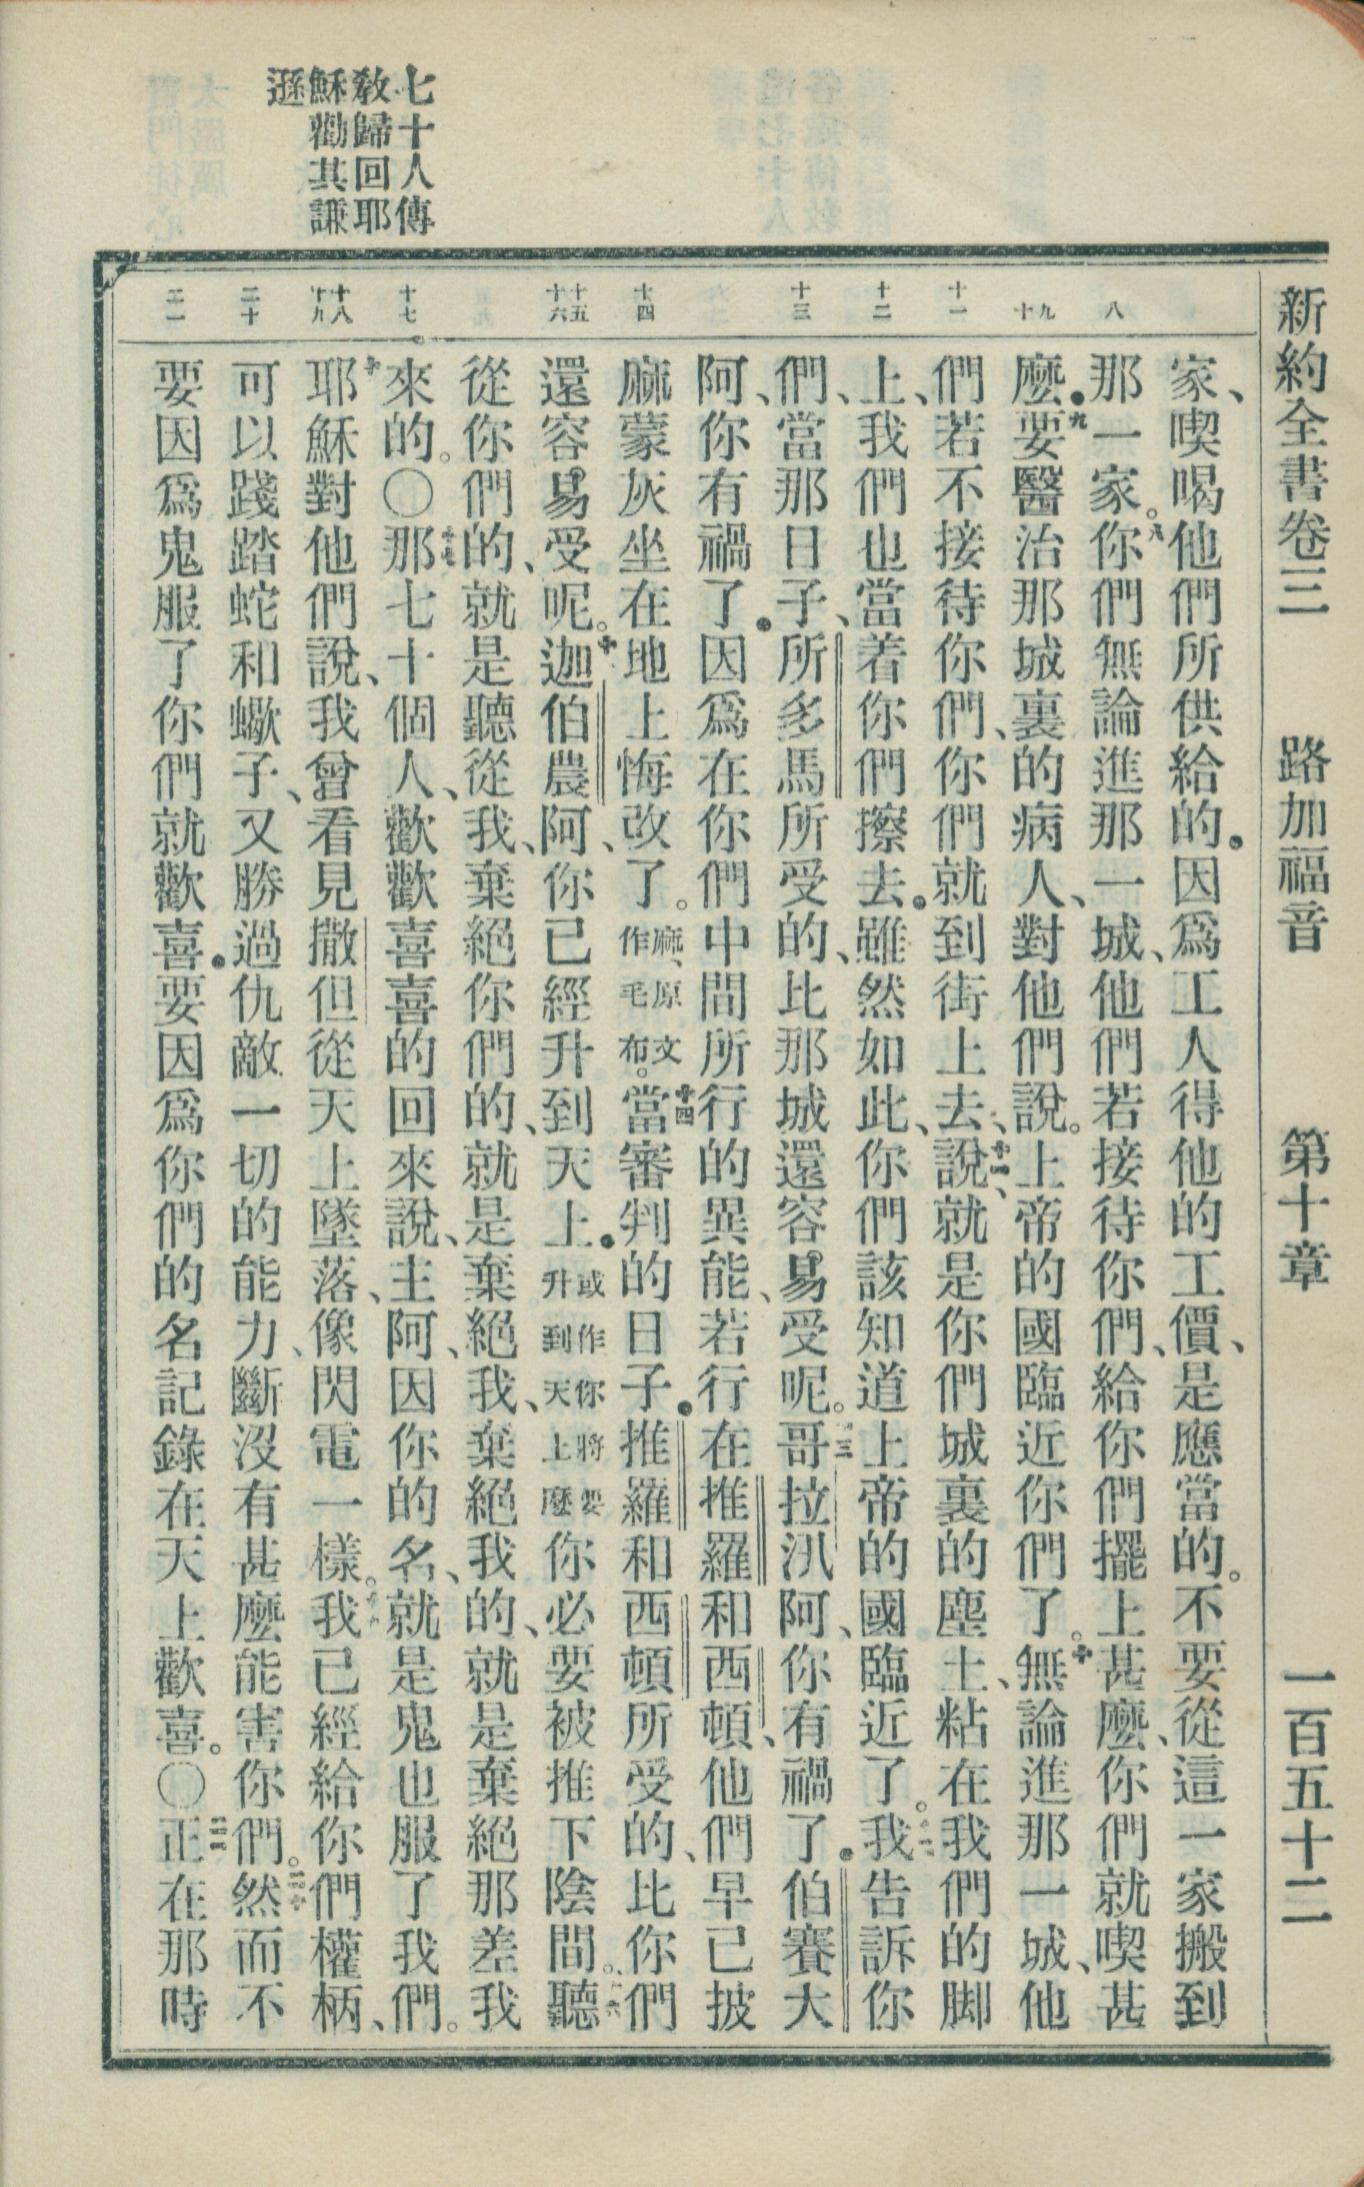 新約全書卷三　路加福音　第十章　一百五十二
七十人傳
敎歸回耶
穌勸其謙
遜
八
九
十
十一
十二
十三
十四
十五
十六
十七
十八
十九
二十
二一
家、喫喝他們所供給的．因爲工人得他的工價、是應當的。不要從這一家搬到
那一家。八你們無論進那一城、他們若接待你們、給你們擺上甚麼、你們就喫甚
麼．九要醫治那城裏的病人、對他們說。上帝的國臨近你們了。十無論進那一城、他
們若不接待你們、你們就到街上去、十一說、就是你們城裏的塵土、粘在我們的脚
上、我們也當着你們擦去．雖然如此、你們該知道上帝的國臨近了。十二我告訴你
們、當那日子、所多馬所受的、比那城還容易受呢。十三哥拉汛阿、你有禍了．伯賽大
阿、你有禍了．因爲在你們中間所行的異能、若行在推羅和西頓、他們早已披
麻蒙灰坐在地上悔改了。麻、原文作毛布。十四當審判的日子．推羅和西頓所受的、比你們
還容易受呢。十五迦伯農阿、你已經升到天上．或作你將要升到天上麼你必要被推下陰間。十六聽
從你們的、就是聽從我、棄絕你們的、就是棄絕我、棄絕我的、就是棄絕那差我
來的。〇十七那七十個人、歡歡喜喜的回來說、主阿、因你的名、就是鬼也服了我們。
十八耶穌對他們說、我曾看見撒但從天上墜落、像閃電一樣。十九我已經給你們權柄、
可以踐踏蛇和蠍子、又勝過仇敵一切的能力、斷沒有甚麼能害你們。二十然而不
要因爲鬼服了你們就歡喜．要因爲你們的名記錄在天上歡喜。〇二一正在那時